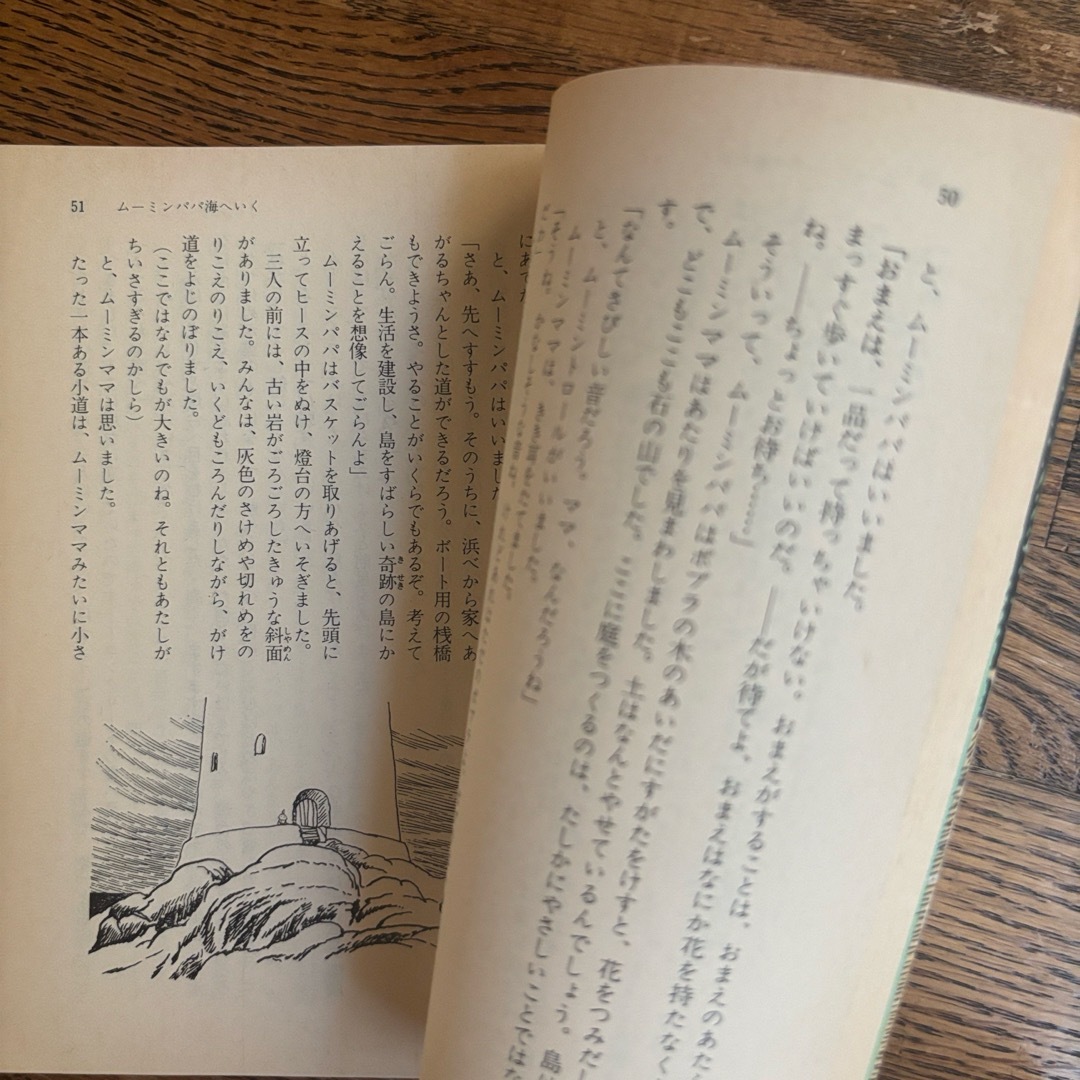 50
と、ムーミンパパはいいました。
「おまえは、一品だって持っちゃいけない。おまえがすることは、おまえのあた
まっすぐ歩いていけばいいのだ。――だが待てよ、おまえはなにか花を持たなく
ね。――ちょっとお待ち……」
そういって、ムーミンパパはポプラの木のあいだにすがたをけすと、花をつみだし
ムーミンママはあたりを見まわしました。土はなんとやせているんでしょう。島は
で、どこもここも石の山でした。ここに庭をつくるのは、たしかにやさしいことではな
す。
「なんてさびしい音だろう。ママ、なんだろうね」
と、ムーミントロールがいいました。
ムーミンママは、きき耳をたてました。
「そうね。
51 ムーミンパパ海へいく
と、ムーミンパパはいいました
「さあ、先へすすもう。そのうちに、浜べから家へあ
がるちゃんとした道ができるだろう。ボート用の桟橋
もできようさ。やることがいくらでもあるぞ。考えて
ごらん。生活を建設し、島をすばらしい奇跡の島にか
えることを想像してごらんよ」
ムーミンパパはバスケットを取りあげると、先頭に
立ってヒースの中をぬけ、燈台の方へいそぎました。
三人の前には、古い岩がごろごろしたきゅうな斜面
がありました。みんなは、灰色のさけめや切れめをの
りこえのりこえ、いくどもころんだりしながら、がけ
道をよじのぼりました。
（ここではなんでもが大きいのね。それともあたしが
ちいさすぎるのかしら）
と、ムーミンママは思いました。
たった一本ある小道は、ムーミンママみたいに小さ